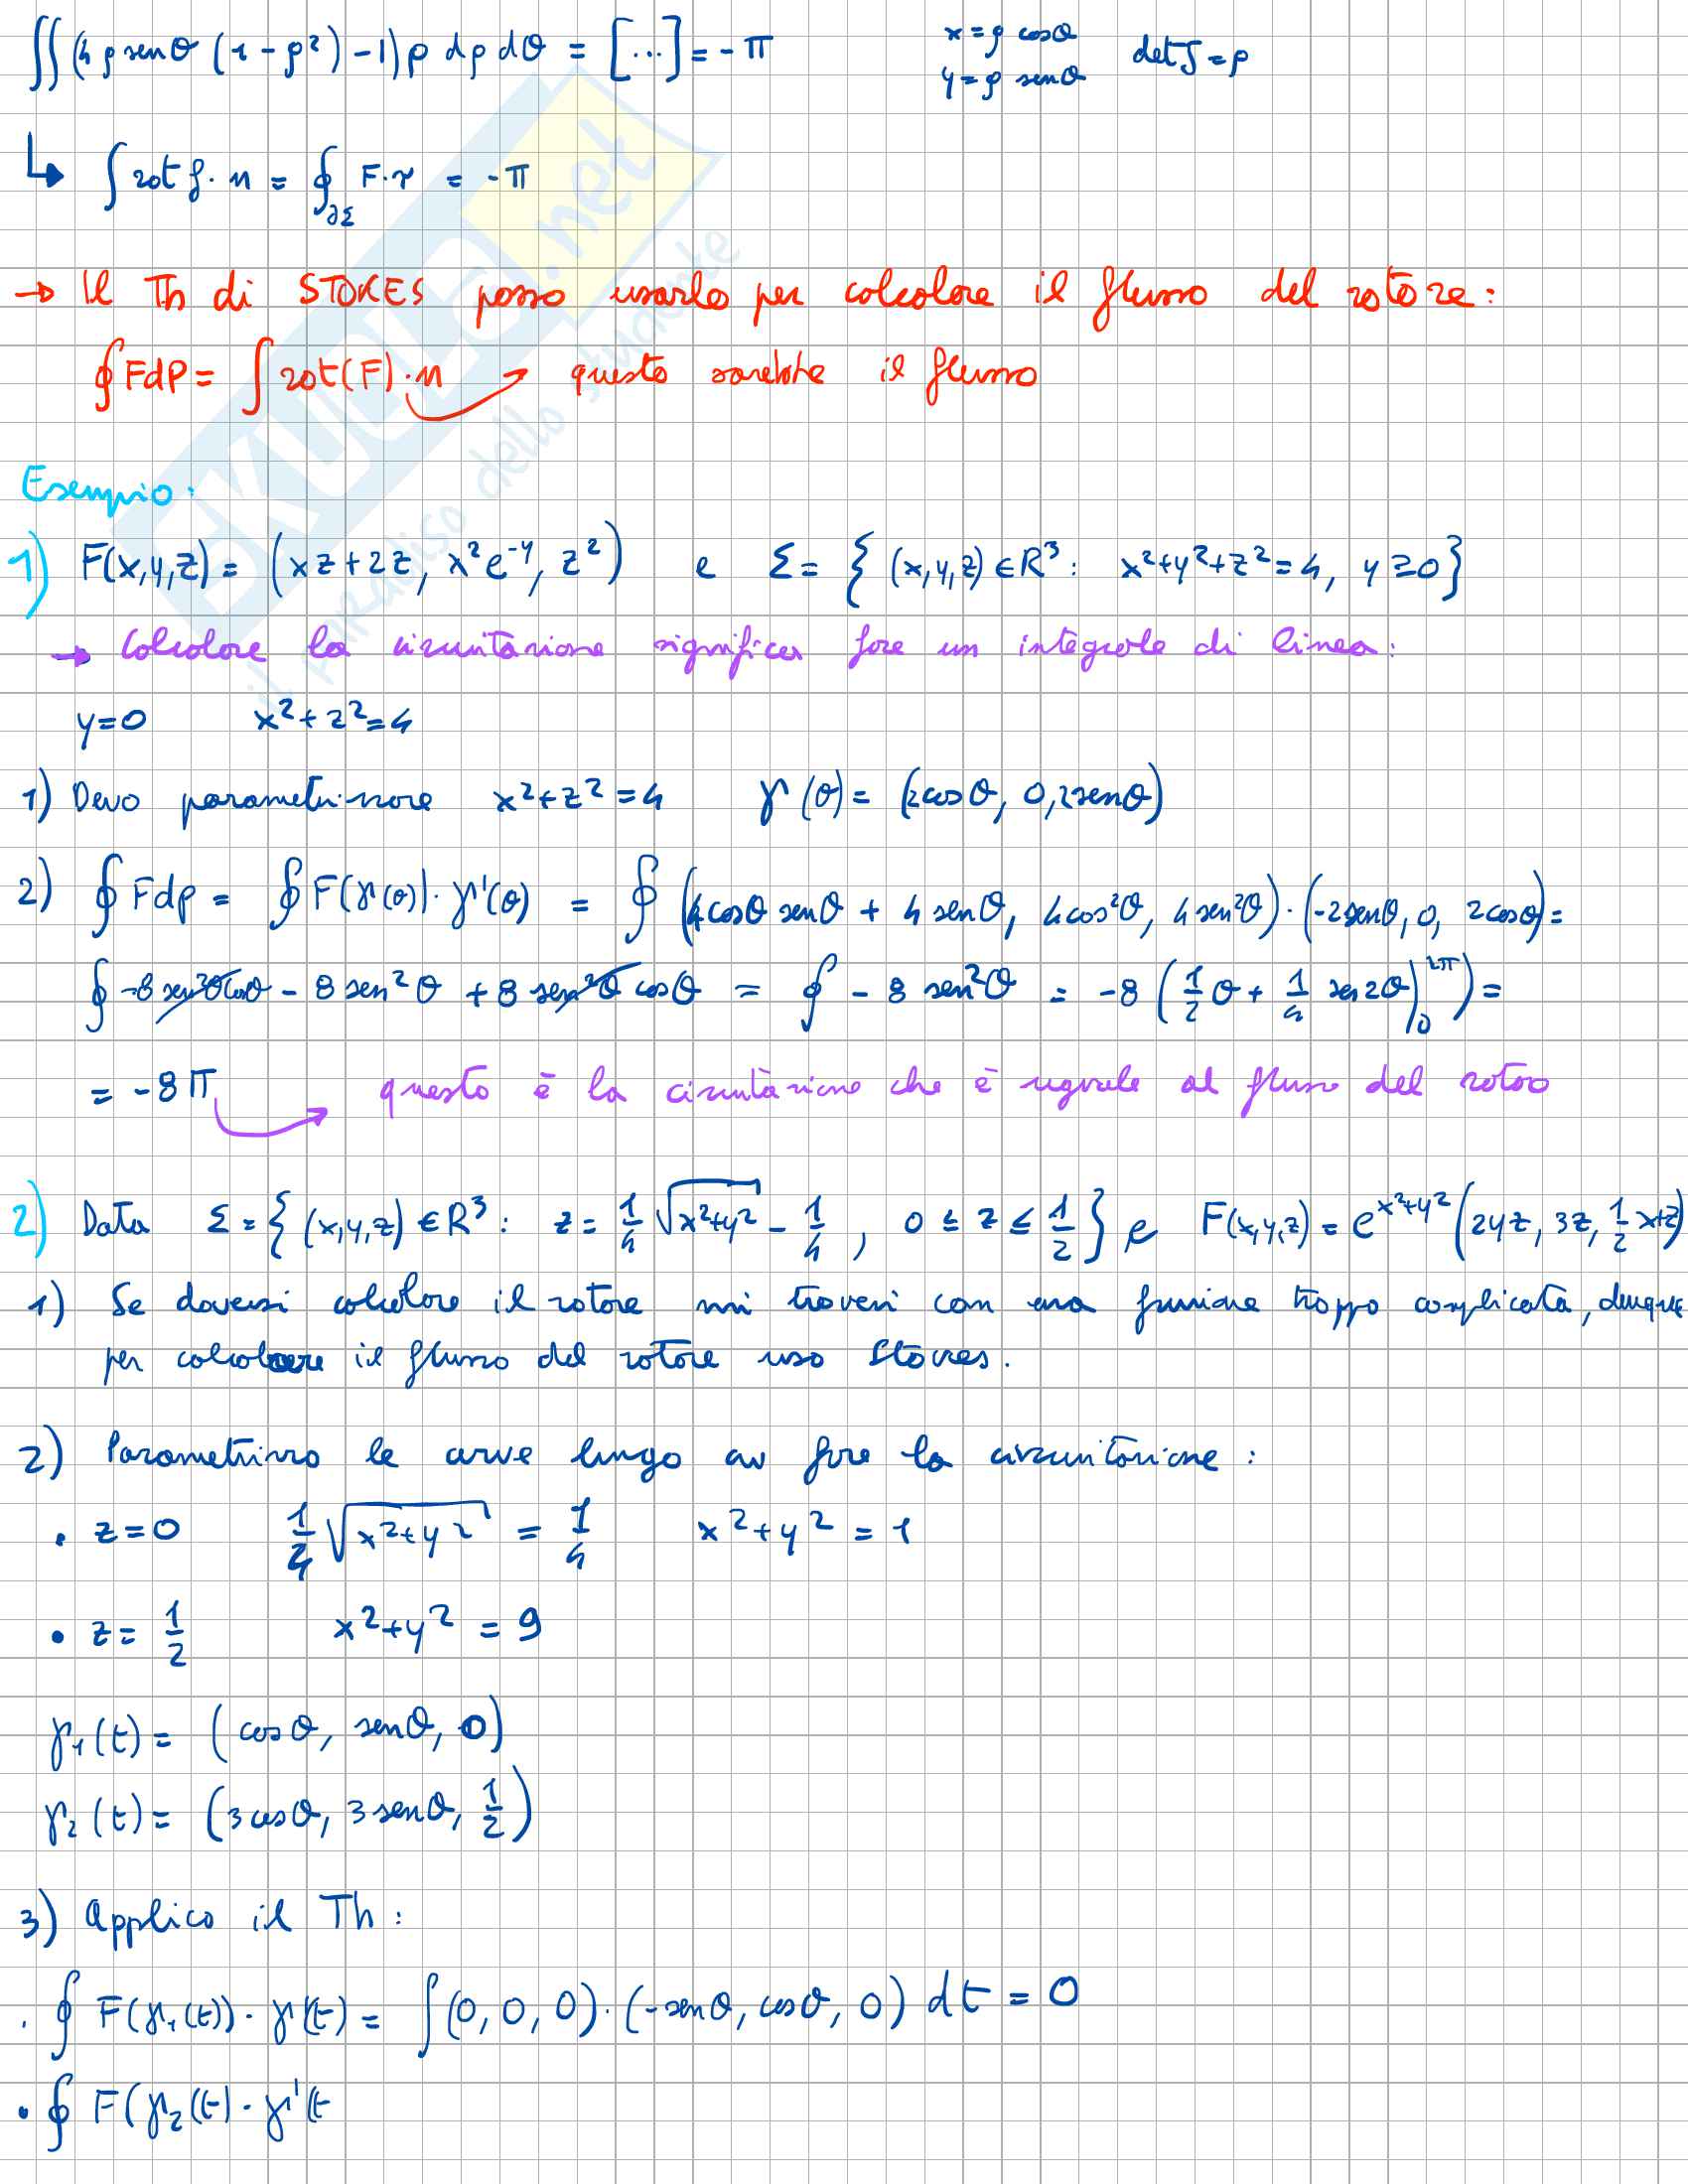 ∬ (4ρ senθ (1-ρ²)-1)ρ dρ dθ = [...] = -π    x=ρ cosθ    det J = ρ
y=ρ senθ
↳ ∫ rot f · n = ∮_∂Σ F·τ = -π
→ Il Th di STOKES posso usarlo per calcolare il flusso del rotore:
∮ FdP = ∫ rot(F)·n → questo sarebbe il flusso
Esempio:
1) F(x,y,z) = (xz+2z, x²e^-y, z²) e Σ = { (x,y,z) ∈ R³: x²+y²+z²=4, y≥0}
→ Calcolare la circuitazione significa fare un integrale di linea:
y=0    x²+z²=4
1) Devo parametrizzare x²+z²=4    γ(θ) = (2cosθ, 0, 2senθ)
2) ∮ Fdp = ∮ F(γ(θ))·γ'(θ) = ∮ (4cosθ senθ + 4 senθ, 4cos²θ, 4sen²θ)·(-2senθ, 0, 2cosθ) =
∮ -8 sen²θcosθ - 8 sen²θ + 8 sen²θ cosθ = ∮ - 8 sen²θ = -8 (1/2 θ + 1/4 sen2θ |₀^2π) =
= -8π → questo è la circuitazione che è uguale al flusso del rotore
2) Data Σ = { (x,y,z) ∈ R³: z = 1/4 √x²+y² - 1/4, 0 ≤ z ≤ 1/2 } e F(x,y,z) = e^x²+y² (2yz, 3z, 1/2 x+z)
1) Se dovessi calcolare il rotore mi troverei con una funzione troppo complicata, dunque
per calcolare il flusso del rotore uso Stokes.
2) Parametrizzo le curve lungo cui fare la circuitazione:
• z=0    1/4 √x²+y² = 1/4    x²+y² = 1
• z= 1/2    x²+y² = 9
γ₁(t) = (cosθ, senθ, 0)
γ₂(t) = (3cosθ, 3senθ, 1/2)
3) Applico il Th:
• ∮ F(γ₁(t))·γ'(t) = ∫ (0, 0, 0)·(-senθ, cosθ, 0) dt = 0
• ∮ F(γ₂(t)·γ'(t
SKUOLA.net
il paradiso dello studente